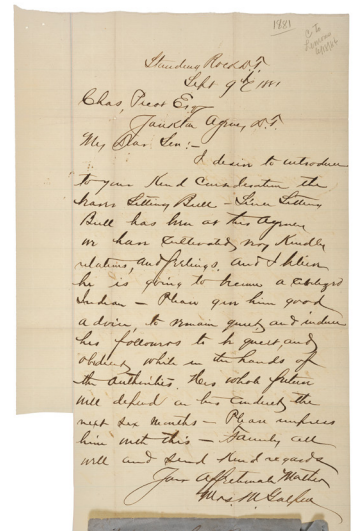 1881
Standing Rock D.T.
Sept 9th 1881
Chas. Picot Esq
Yankton Agency D.T.
My Dear Son:-
I desire to introduce
to your Kind Consideration the
Sitting Bull - Since Sitting
Bull has been at this Agency
we have cultivated very Kindly
relations, and feelings, and I believe
he is going to become a civilized
Indian - Please give him good
advice, to remain quiet, and induce
his followers to be quiet, and
obedient, while in the hands of
the authorities. His whole future
will depend on his conduct, the
next six months - Please impress
him with this - Family all
well and send Kind regards
Your Affectionate Mother
Mrs. M. Galpin